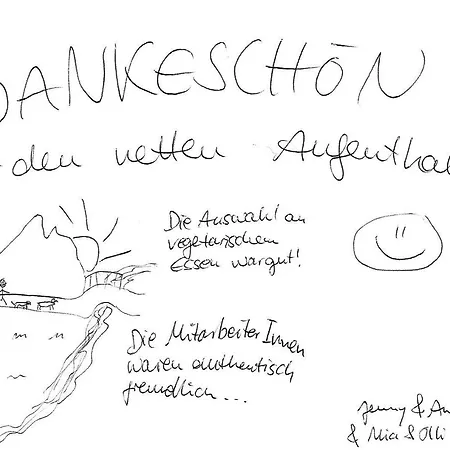 DANKESCHÖN
den netten Aufenthal
Die Auswahl an
vegetarischem
Essen war gut!
Die MitarbeiterInnen
waren authentisch
freundlich...
Jenny & An
& Mia & Olli